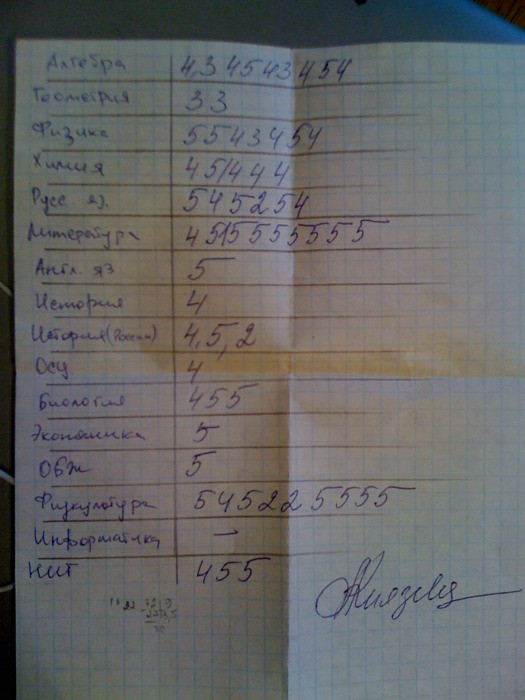 Алгебра 4,3 4 5 4 3 4 5 4
Геометрия 3 3
Физика 5 5 4 3 4 5 4
Химия 4 5/4 4 4
Русс. яз. 5 4 5 2 5 4
Литература 4 5/5 5 5 5 5 5
Англ. яз 5
История 4
История (России) 4, 5, 2
Осц 4
Биология 4 5 5
Экономика 5
ОБЖ 5
Физкультура 5 4 5 2 2 5 5 5 5
Информатика —
НИТ 4 5 5